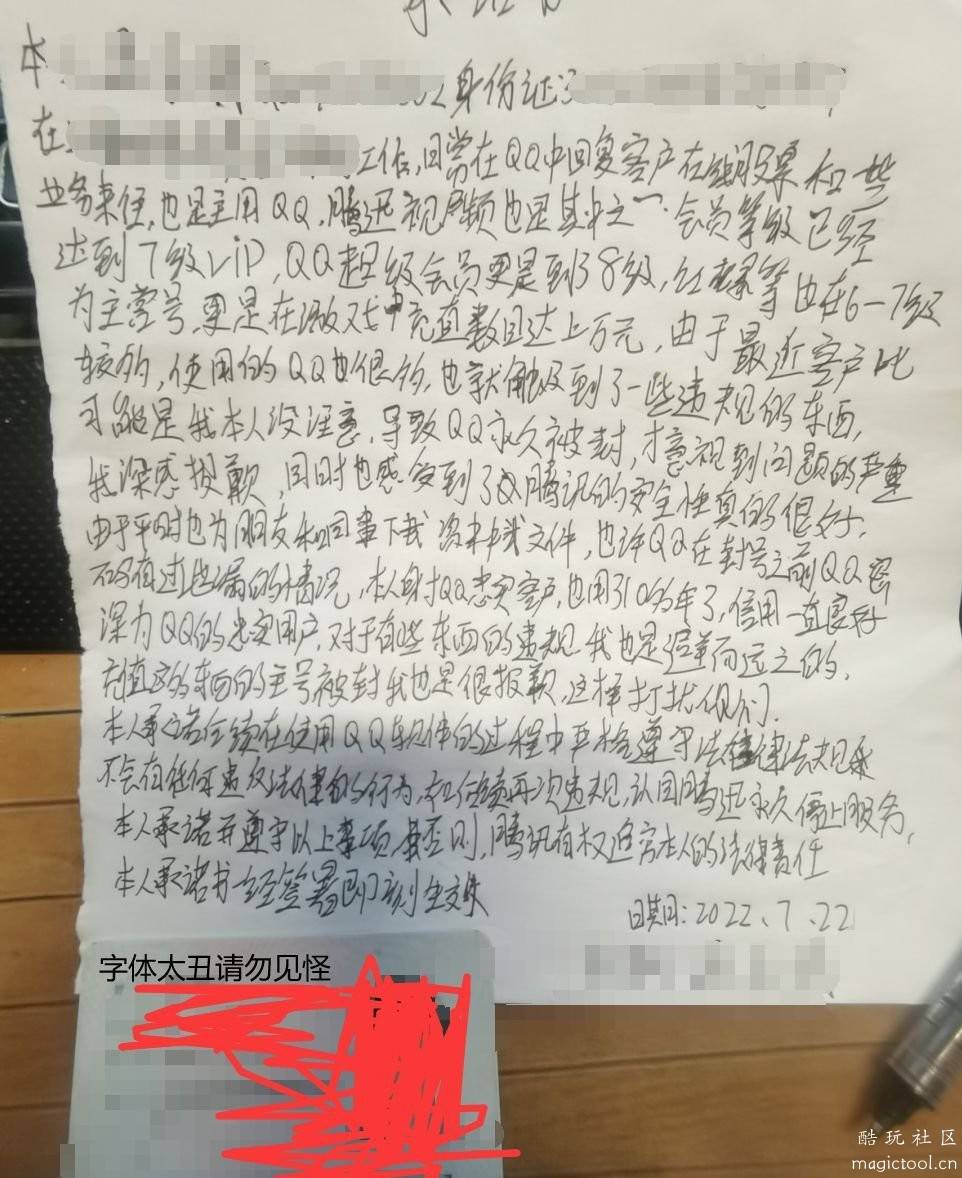 承诺书
本
身份证
在 工作,日常在QQ中回复客户在线股票和些
业务来往,也是主用QQ,腾迅视频也是其中之一.会员等级已经
达到7级VIP,QQ超级会员更是到了8级,红 等也在6-7级
为主营号,更是在游戏中充值数目达上万元,由于最近客户比
较多,使用的QQ也很多,也就触及到了一些违规的东西,
可能是我本人没注意,导致QQ永久被封,才意视到问题的严重
我深感报歉,同时也感受到了腾讯的安全性真的很好.
由于平时也为朋友和同事下载 文件,也许QQ在封号之前QQ密
有过 漏的情况,本人身为QQ忠实客户,也用了10多年了,信用一直良好
深为QQ的忠实用户,对于有些东西的违规我也是 而远之的,
充值这多东西的主号被封我也是很报歉,这样打扰你们.
本人承诺 续在使用QQ软件的过程中严格遵守法律法规
不会有任何违反法律的行为,如 续再次违规,认同腾迅永久停止服务,
本人承诺并遵守以上事项,否则,腾讯有权追究本人的法律责任
本人承诺书一经签署即刻生效
日期:2022、7、22
字体太丑请勿见怪
酷玩社区
magictool.cn